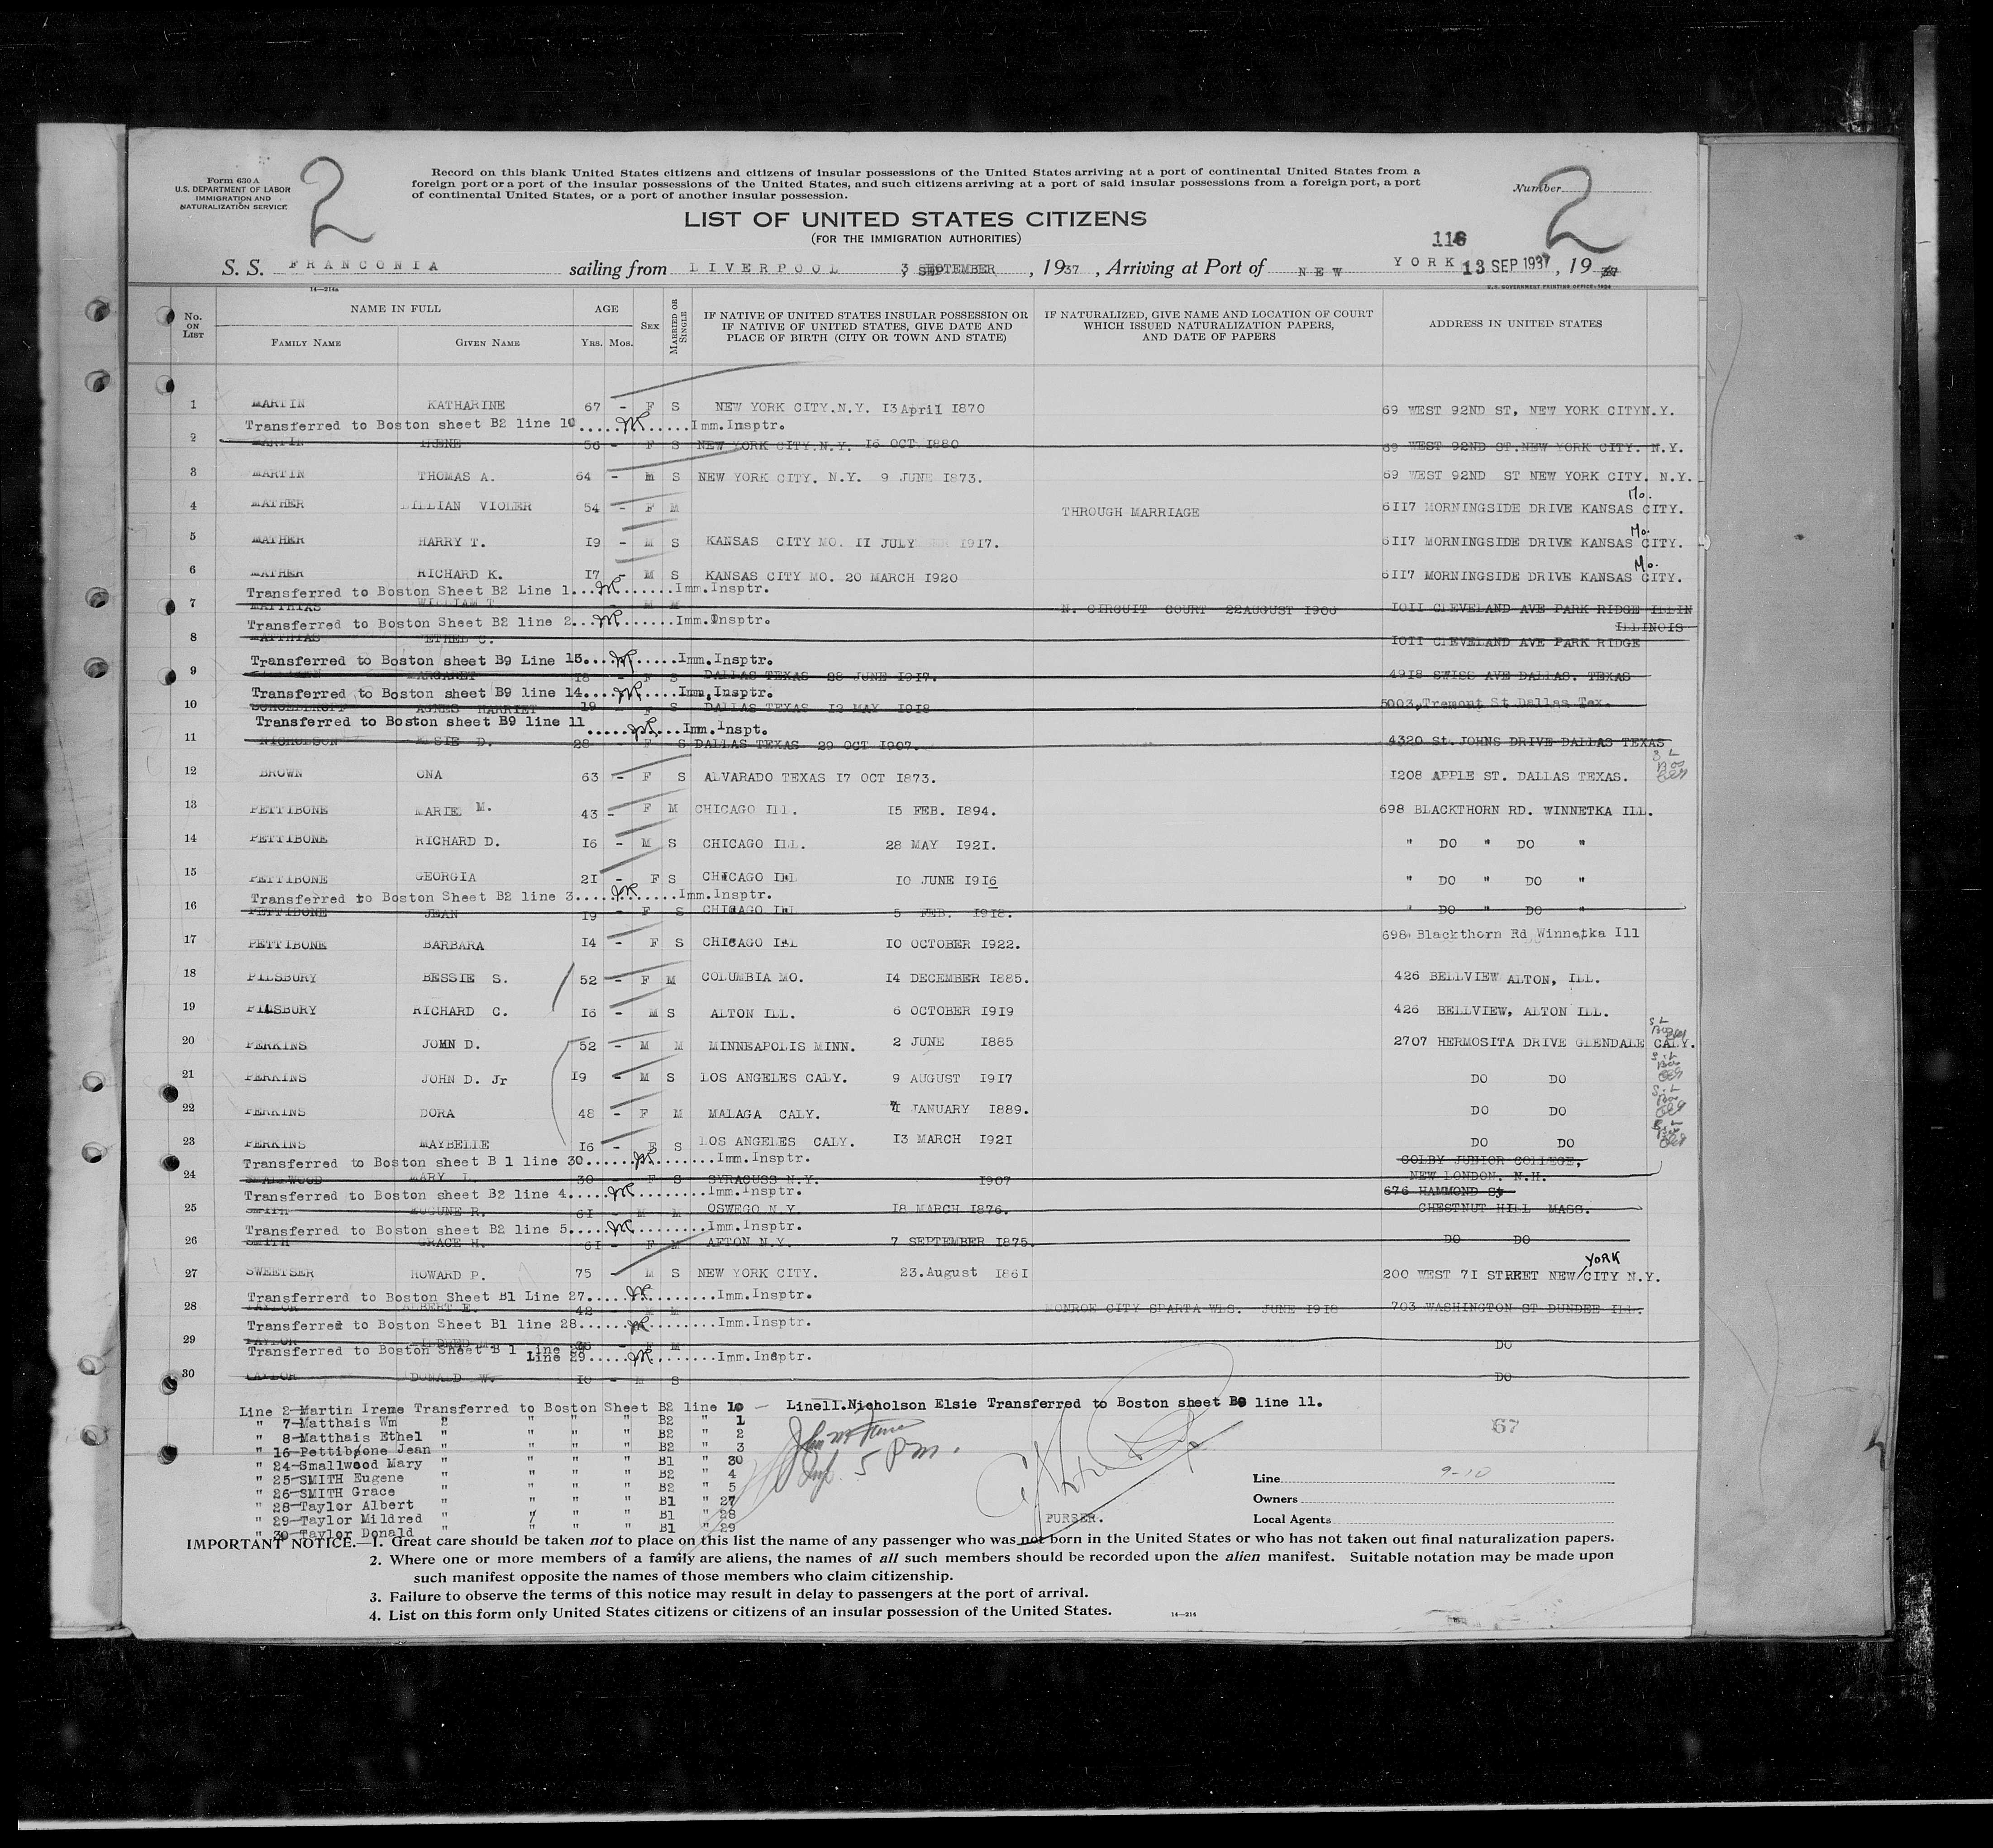 Form 630 A
U.S. DEPARTMENT OF LABOR
IMMIGRATION AND
NATURALIZATION SERVICE
2
Record on this blank United States citizens and citizens of insular possessions of the United States arriving at a port of continental United States from a
foreign port or a port of the insular possessions of the United States, and such citizens arriving at a port of said insular possessions from a foreign port, a port
of continental United States, or a port of another insular possession.
Number
2
LIST OF UNITED STATES CITIZENS
(FOR THE IMMIGRATION AUTHORITIES)
116
S. S. FRANCONIA sailing from LIVERPOOL 3 SEPTEMBER, 1937, Arriving at Port of NEW YORK 13 SEP 1937, 19
14—214a
U.S. GOVERNMENT PRINTING OFFICE: 1934
No. ON LIST
NAME IN FULL
FAMILY NAME GIVEN NAME
AGE
YRS. MOS.
SEX
MARRIED OR SINGLE
IF NATIVE OF UNITED STATES INSULAR POSSESSION OR
IF NATIVE OF UNITED STATES, GIVE DATE AND
PLACE OF BIRTH (CITY OR TOWN AND STATE)
IF NATURALIZED, GIVE NAME AND LOCATION OF COURT
WHICH ISSUED NATURALIZATION PAPERS,
AND DATE OF PAPERS
ADDRESS IN UNITED STATES
1 MARTIN KATHARINE 67 - F S NEW YORK CITY.N.Y. 13 April 1870 69 WEST 92ND ST, NEW YORK CITYN.Y.
Transferred to Boston sheet B2 line 10..........Imm.Insptr.
2 MARTIN IRENE 56 - F S NEW YORK CITY.N.Y. 16 OCT 1880 69 WEST 92ND ST.NEW YORK CITY. N.Y.
3 MARTIN THOMAS A. 64 - m S NEW YORK CITY. N.Y. 9 JUNE 1873. 69 WEST 92ND ST NEW YORK CITY. N.Y.
4 MATHER LILLIAN VIOLER 54 - F M THROUGH MARRIAGE 6117 MORNINGSIDE DRIVE KANSAS CITY. Mo.
5 MATHER HARRY T. 19 - M S KANSAS CITY MO. 11 JULY 1917. 6117 MORNINGSIDE DRIVE KANSAS CITY. Mo.
6 MATHER RICHARD K. 17 - M S KANSAS CITY MO. 20 MARCH 1920 6117 MORNINGSIDE DRIVE KANSAS CITY. Mo.
Transferred to Boston Sheet B2 Line 1..........Imm.Insptr.
7 MATTHIAS WILLIAM T M M N. CIRCUIT COURT 22AUGUST 1906 1011 CLEVELAND AVE PARK RIDGE ILLIN
Transferred to Boston Sheet B2 line 2..........Imm.Insptr.
ILLINOIS
8 MATTHIAS ETHEL C. 1011 CLEVELAND AVE PARK RIDGE
Transferred to Boston sheet B9 Line 15..........Imm.Insptr.
9 MARGARET 18 - F S DALLAS TEXAS 28 JUNE 1917. 4918 SWISS AVE DALLAS. TEXAS
Transferred to Boston sheet B9 line 14..........Imm.Insptr.
10 AGNES HARRIET 19 F S DALLAS TEXAS 12 MAY 1918 5003,Tremont St Dallas Tex.
Transferred to Boston sheet B9 line 11
..........Imm.Inspt.
11 NICHOLSON ELSIE D. 28 - F S DALLAS TEXAS 29 OCT 1907. 4320 St.JOHNS DRIVE DALLAS TEXAS
12 BROWN ONA 63 - F S ALVARADO TEXAS 17 OCT 1873. 1208 APPLE ST. DALLAS TEXAS.
13 PETTIBONE MARIE M. 43 - F M CHICAGO ILL. 15 FEB. 1894. 698 BLACKTHORN RD. WINNETKA ILL.
14 PETTIBONE RICHARD D. 16 - M S CHICAGO ILL. 28 MAY 1921. " DO " DO "
15 PETTIBONE GEORGIA 21 - F S CHICAGO ILL 10 JUNE 1916 " DO " DO "
Transferred to Boston Sheet B2 line 3..........Imm.Insptr.
16 PETTIBONE JEAN 19 - F S CHICAGO ILL 5 FEB. 1918. " DO " DO "
17 PETTIBONE BARBARA 14 - F S CHICAGO ILL 10 OCTOBER 1922. 698 Blackthorn Rd Winnetka Ill
18 PILSBURY BESSIE S. 52 - F M COLUMBIA MO. 14 DECEMBER 1885. 426 BELLVIEW ALTON, ILL.
19 PILSBURY RICHARD C. 16 - M S ALTON ILL. 6 OCTOBER 1919 426 BELLVIEW, ALTON ILL.
20 PERKINS JOHN D. 52 - M M MINNEAPOLIS MINN. 2 JUNE 1885 2707 HERMOSITA DRIVE GLENDALE CALY.
21 PERKINS JOHN D. Jr 19 - M S LOS ANGELES CALY. 9 AUGUST 1917 DO DO
22 PERKINS DORA 48 - F M MALAGA CALY. 1 JANUARY 1889. DO DO
23 PERKINS MAYBELLE 16 - F S LOS ANGELES CALY. 13 MARCH 1921 DO DO
Transferred to Boston sheet B 1 line 30..........Imm.Insptr.
COLBY JUNIOR COLLEGE,
24 SMALLWOOD MARY L. 30 - F S SYRACUSS N.Y. 1907 NEW LONDON. N.H.
Transferred to Boston sheet B2 line 4..........Imm.Insptr.
676 HAMMOND St
25 SMITH EUGUNE R. 61 - M M OSWEGO N.Y. 18 MARCH 1876. CHESTNUT HILL MASS.
Transferred to Boston sheet B2 line 5..........Imm.Insptr.
26 SMITH GRACE H. 61 - F M AFTON N.Y. 7 SEPTEMBER 1875. DO DO
27 SWEETSER HOWARD P. 75 - M S NEW YORK CITY. 23.August 1861 200 WEST 71 STREET NEW/CITY N.Y. YORK
Transferrerd to Boston Sheet B1 Line 27..........Imm.Insptr.
28 TAYLOR ALBERT E. 42 - M M MONROE CITY SPARTA WIS. JUNE 1918 703 WASHINGTON ST DUNDEE ILL.
Transferred to Boston Sheet B1 line 28..........Imm.Insptr.
29 TAYLOR MILDRED M. 36 - F M DO
Transferred to Boston Sheet B 1 line
Line 29..........Imm.Insptr.
30 TAYLOR DONALD W. 10 - M S DO
Line 2-Martin Irene Transferred to Boston Sheet B2 line 10 — Line11.Nicholson Elsie Transferred to Boston sheet B9 line 11.
" 7-Matthais Wm " " " " B2 " 1
" 8-Matthais Ethel " " " " B2 " 2
" 16-Pettibone Jean " " " " B2 " 3
" 24-Smallwood Mary " " " " B1 " 30
" 25-SMITH Eugene " " " " B2 " 4
" 26-SMITH Grace " " " " B2 " 5
" 28-Taylor Albert " " " " B1 " 27
" 29-Taylor Mildred " " " " B1 " 28
" 30-Taylor Donald " " " " B1 " 29
67
PURSER.
Line 9-10
Owners
Local Agents
IMPORTANT NOTICE.—1. Great care should be taken not to place on this list the name of any passenger who was not born in the United States or who has not taken out final naturalization papers.
2. Where one or more members of a family are aliens, the names of all such members should be recorded upon the alien manifest. Suitable notation may be made upon
such manifest opposite the names of those members who claim citizenship.
3. Failure to observe the terms of this notice may result in delay to passengers at the port of arrival.
4. List on this form only United States citizens or citizens of an insular possession of the United States.
14—214